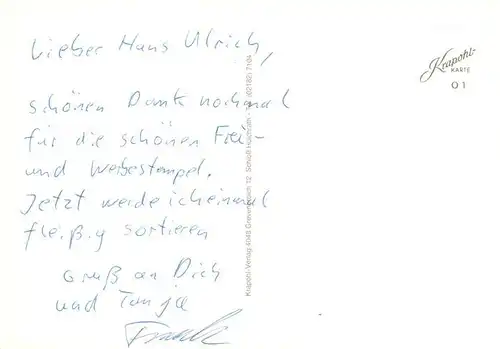 Lieber Hans Ulrich,
schönen Dank nochmal
für die schönen Frei-
und Werbestempel.
Jetzt werde ich einmal
fleißig sortieren
Gruß an Dich
und Tanja
Frank
Krapohl-
KARTE
01
Krapohl-Verlag 4048 Grevenbroich 12 Schloß Hülchrath - Tel. (02182) 7104